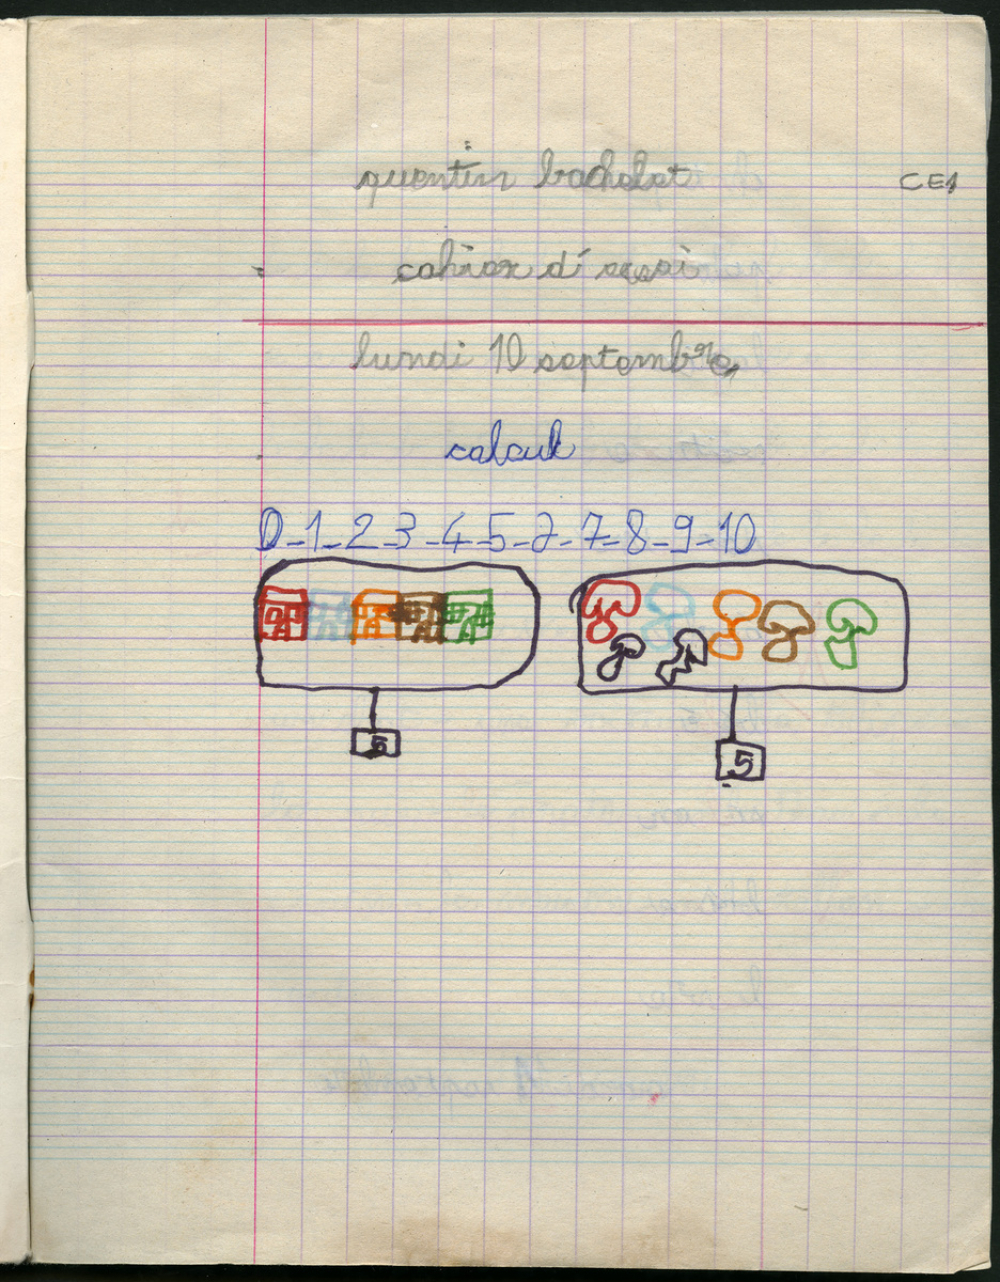 quentin bachelat CE1
cahier d'essai
lundi 10 septembre
calcul
0-1-2-3-4-5-6-7-8-9-10
5 5